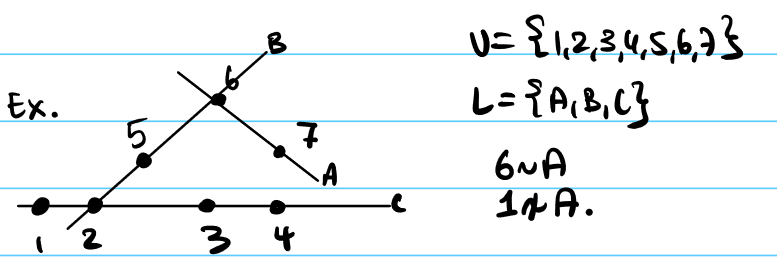 Ex.
B
6
5
7
A
C
1 2 3 4
U={1,2,3,4,5,6,7}
L={A,B,C}
6~A
1≁A.